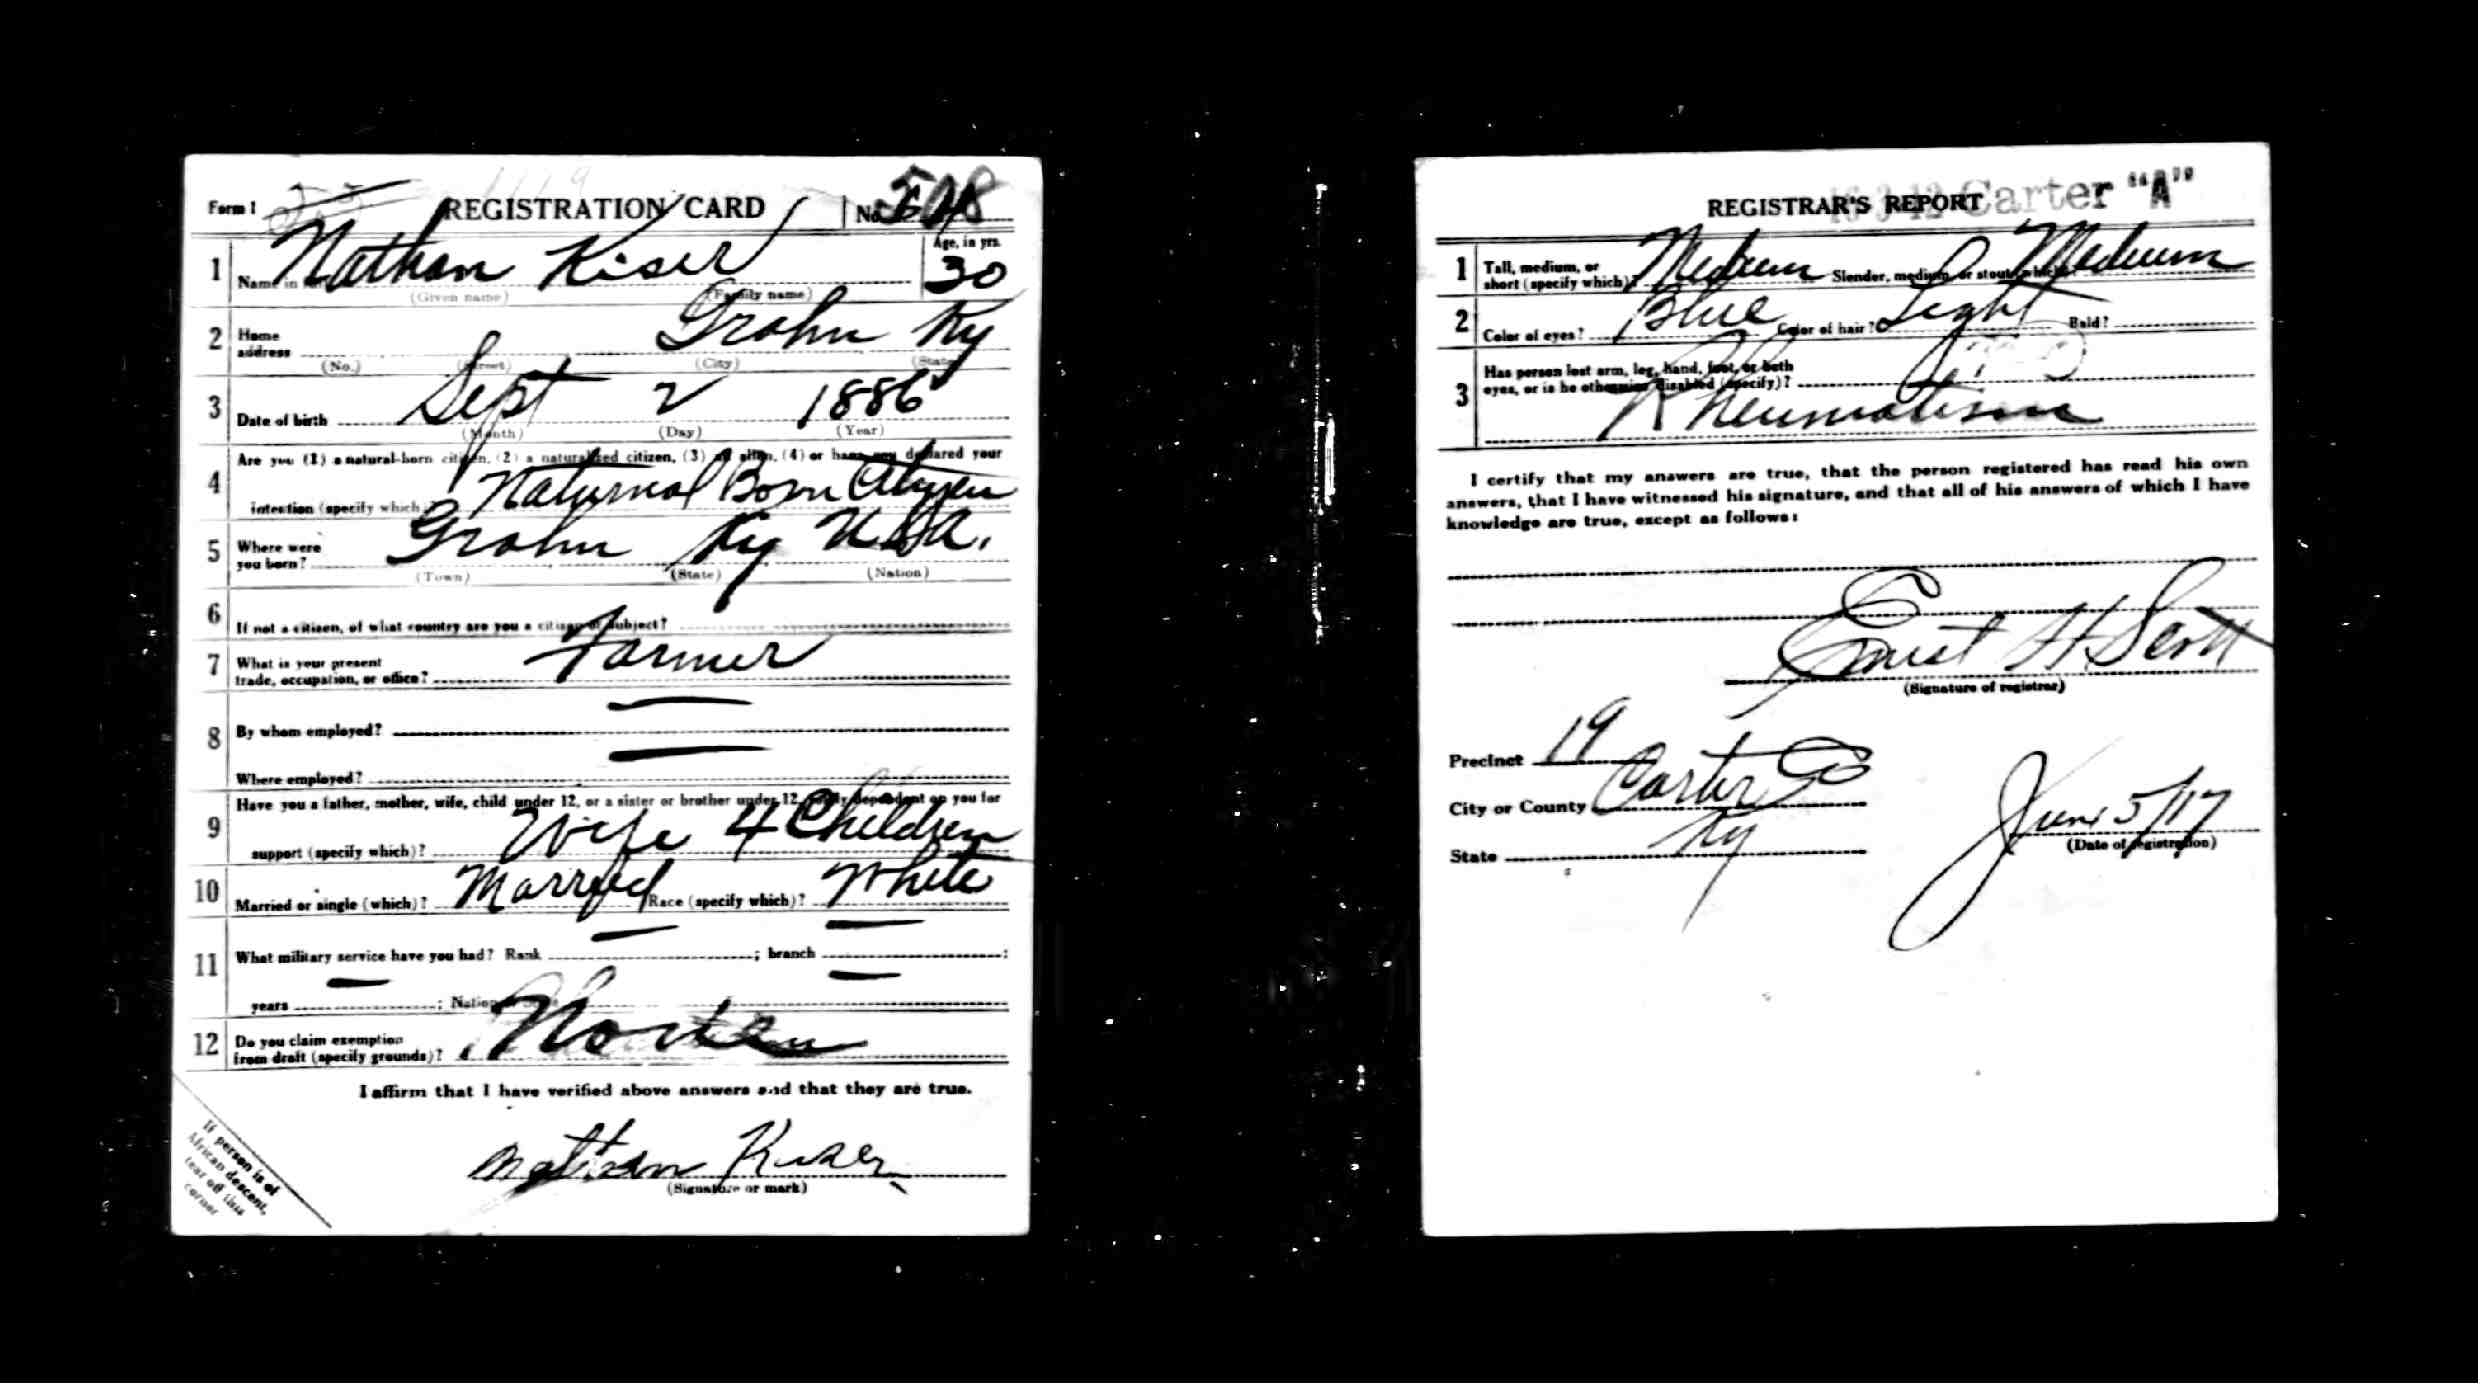 Form 1 REGISTRATION CARD No.
1 Name in Nathan Kiser Age, in yrs. 30
(Given name) (Family name)
2 Home address Grahn Ky
(No.) (Street) (City) (State)
3 Date of birth Sept 2 1886
(Month) (Day) (Year)
4 Are you (1) a natural-born citizen, (2) a naturalized citizen, (3) an alien, (4) or have you declared your
intention (specify which)? Natural Born Citizen
5 Where were you born? Grahn Ky U.S.A.
(Town) (State) (Nation)
6 If not a citizen, of what country are you a citizen or subject?
7 What is your present trade, occupation, or office? Farmer
8 By whom employed? —
Where employed? —
9 Have you a father, mother, wife, child under 12, or a sister or brother under 12, solely dependent on you for
support (specify which)? Wife 4 Children
10 Married or single (which)? Married Race (specify which)? White
11 What military service have you had? Rank — ; branch — ;
years — ; Nation or State —
12 Do you claim exemption from draft (specify grounds)?
I affirm that I have verified above answers and that they are true.
Nathan Kiser
(Signature or mark)
If person is of
African descent,
tear off this
corner
REGISTRAR'S REPORT Carter "A"
1 Tall, medium, or short (specify which)? Medium Slender, medium, or stout (which)? Medium
2 Color of eyes? Blue Color of hair? Light Bald?
3 Has person lost arm, leg, hand, foot, or both
eyes, or is he otherwise disabled (specify)?
Rheumatism
I certify that my answers are true, that the person registered has read his own
answers, that I have witnessed his signature, and that all of his answers of which I have
knowledge are true, except as follows:
Ernest H Scott
(Signature of registrar)
Precinct 19
City or County Carter Co
State Ky
June 5/17
(Date of registration)